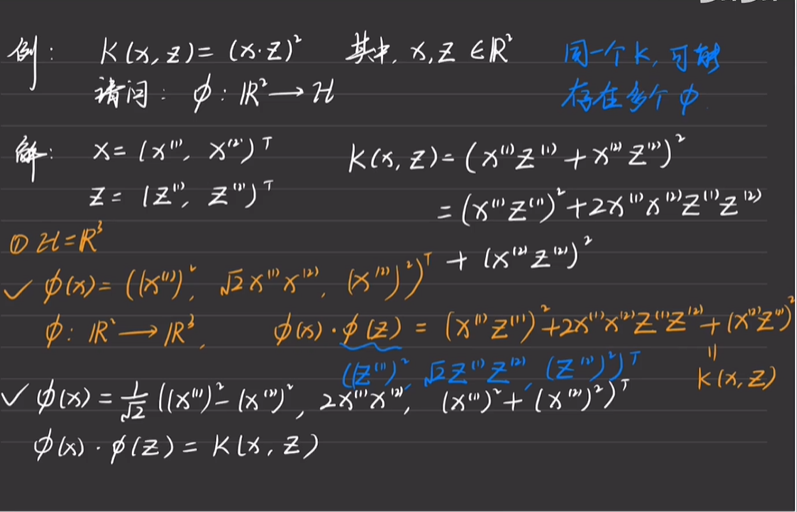 例: K(x, z) = (x·z)² 其中, x, z ∈ ℝ² 同一个 K, 可能
请问: ϕ: ℝ² → ℋ 存在多个 ϕ
解: x = (x⁽¹⁾, x⁽²⁾)ᵀ K(x, z) = (x⁽¹⁾z⁽¹⁾ + x⁽²⁾z⁽²⁾)²
z = (z⁽¹⁾, z⁽²⁾)ᵀ = (x⁽¹⁾z⁽¹⁾)² + 2x⁽¹⁾x⁽²⁾z⁽¹⁾z⁽²⁾
+ (x⁽²⁾z⁽²⁾)²
① ℋ = ℝ³
✓ ϕ(x) = ((x⁽¹⁾)², √2x⁽¹⁾x⁽²⁾, (x⁽²⁾)²)ᵀ
ϕ: ℝ² → ℝ³, ϕ(x)·ϕ(z) = (x⁽¹⁾z⁽¹⁾)² + 2x⁽¹⁾x⁽²⁾z⁽¹⁾z⁽²⁾ + (x⁽²⁾z⁽²⁾)²
((z⁽¹⁾)², √2z⁽¹⁾z⁽²⁾, (z⁽²⁾)²)ᵀ = K(x, z)
✓ ϕ(x) = 1/√2 ((x⁽¹⁾)² - (x⁽²⁾)², 2x⁽¹⁾x⁽²⁾, (x⁽¹⁾)² + (x⁽²⁾)²)ᵀ
ϕ(x)·ϕ(z) = K(x, z)